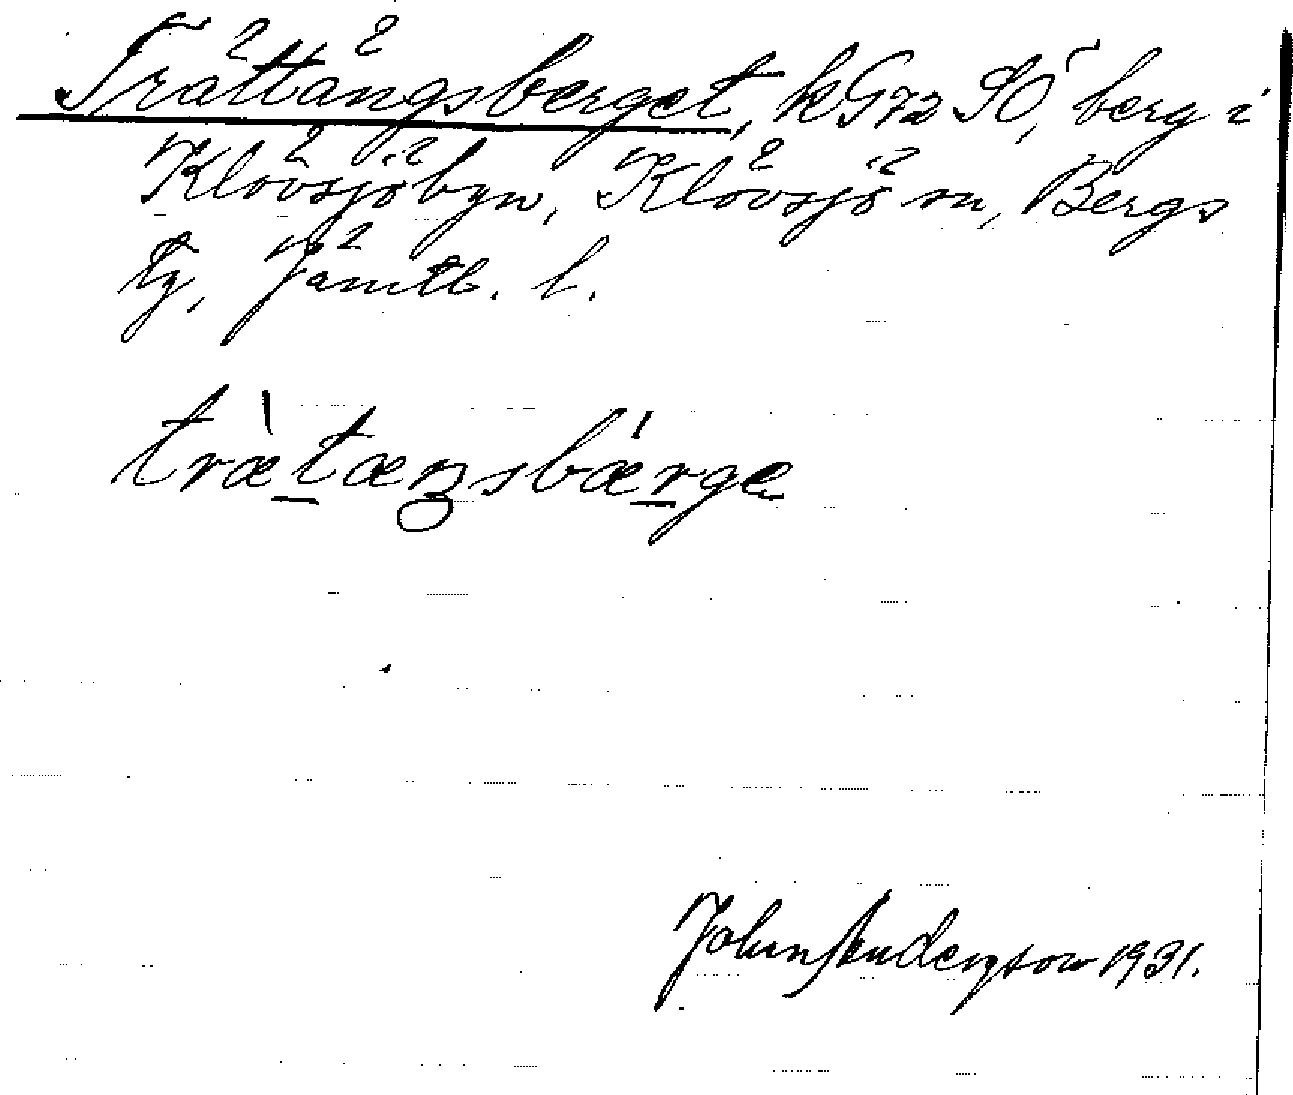 Trättängsberget, kG72 SO, berg i
Klövsjöbyn, Klövsjö sn, Bergs
tg, Jämtl. l.
trætæŋsbærge
John Anderzson 1931.